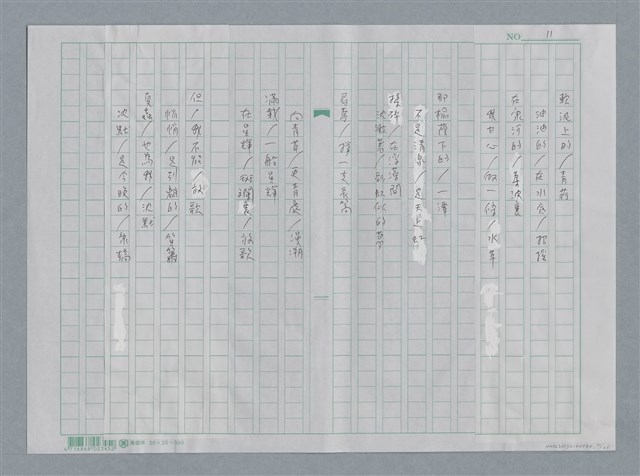 NO 11
軟泥上的/青荇
油油的/在水底/招搖
在康河的/柔波裏
我甘心/做一條/水草
那榆蔭下的/一潭
不是清泉/是天上虹
揉碎/在浮藻間
沉澱著/彩虹似的夢
尋夢/撐一支長篙
向青草/更青處/漫溯
滿載/一船星輝
在星輝/斑斕裏/放歌
但/我不能/放歌
悄悄/是別離的/笙簫
夏蟲/也為我/沈默
沈默/是今晚的/康橋